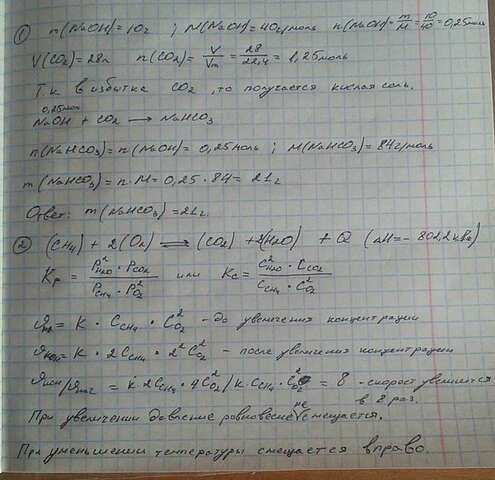 ① m(NaOH)=10г ; M(NaOH)=40г/моль n(NaOH)=m/M=10/40=0,25моль
V(CO₂)=28л n(CO₂)=V/Vm=28/22,4=1,25моль
Т.к в избытке CO₂, то получается кислая соль.
0,25моль
NaOH + CO₂ → NaHCO₃
n(NaHCO₃)=n(NaOH)=0,25моль ; M(NaHCO₃)=84г/моль
m(NaHCO₃)=n·M=0,25·84=21г
Ответ: m(NaHCO₃)=21г.
② (CH₄) + 2(O₂) ⇌ (CO₂) + 2(H₂O) + Q (ΔH=-802,2кДж)
Kp = P²H₂O·PCO₂/PCH₄·P²O₂ или Kc = C²H₂O·CCO₂/CCH₄·C²O₂
= K·CCH₄·C²O₂ - до увеличения концентрации
= K·2CCH₄·2²C²O₂ - после увеличения концентрации
= K·2CCH₄·4C²O₂/K·CCH₄·C²O₂ = 8 - скорость увеличится
в 8 раз.
При увеличении давление равновесие не смещается.
При уменьшении температуры смещается вправо.